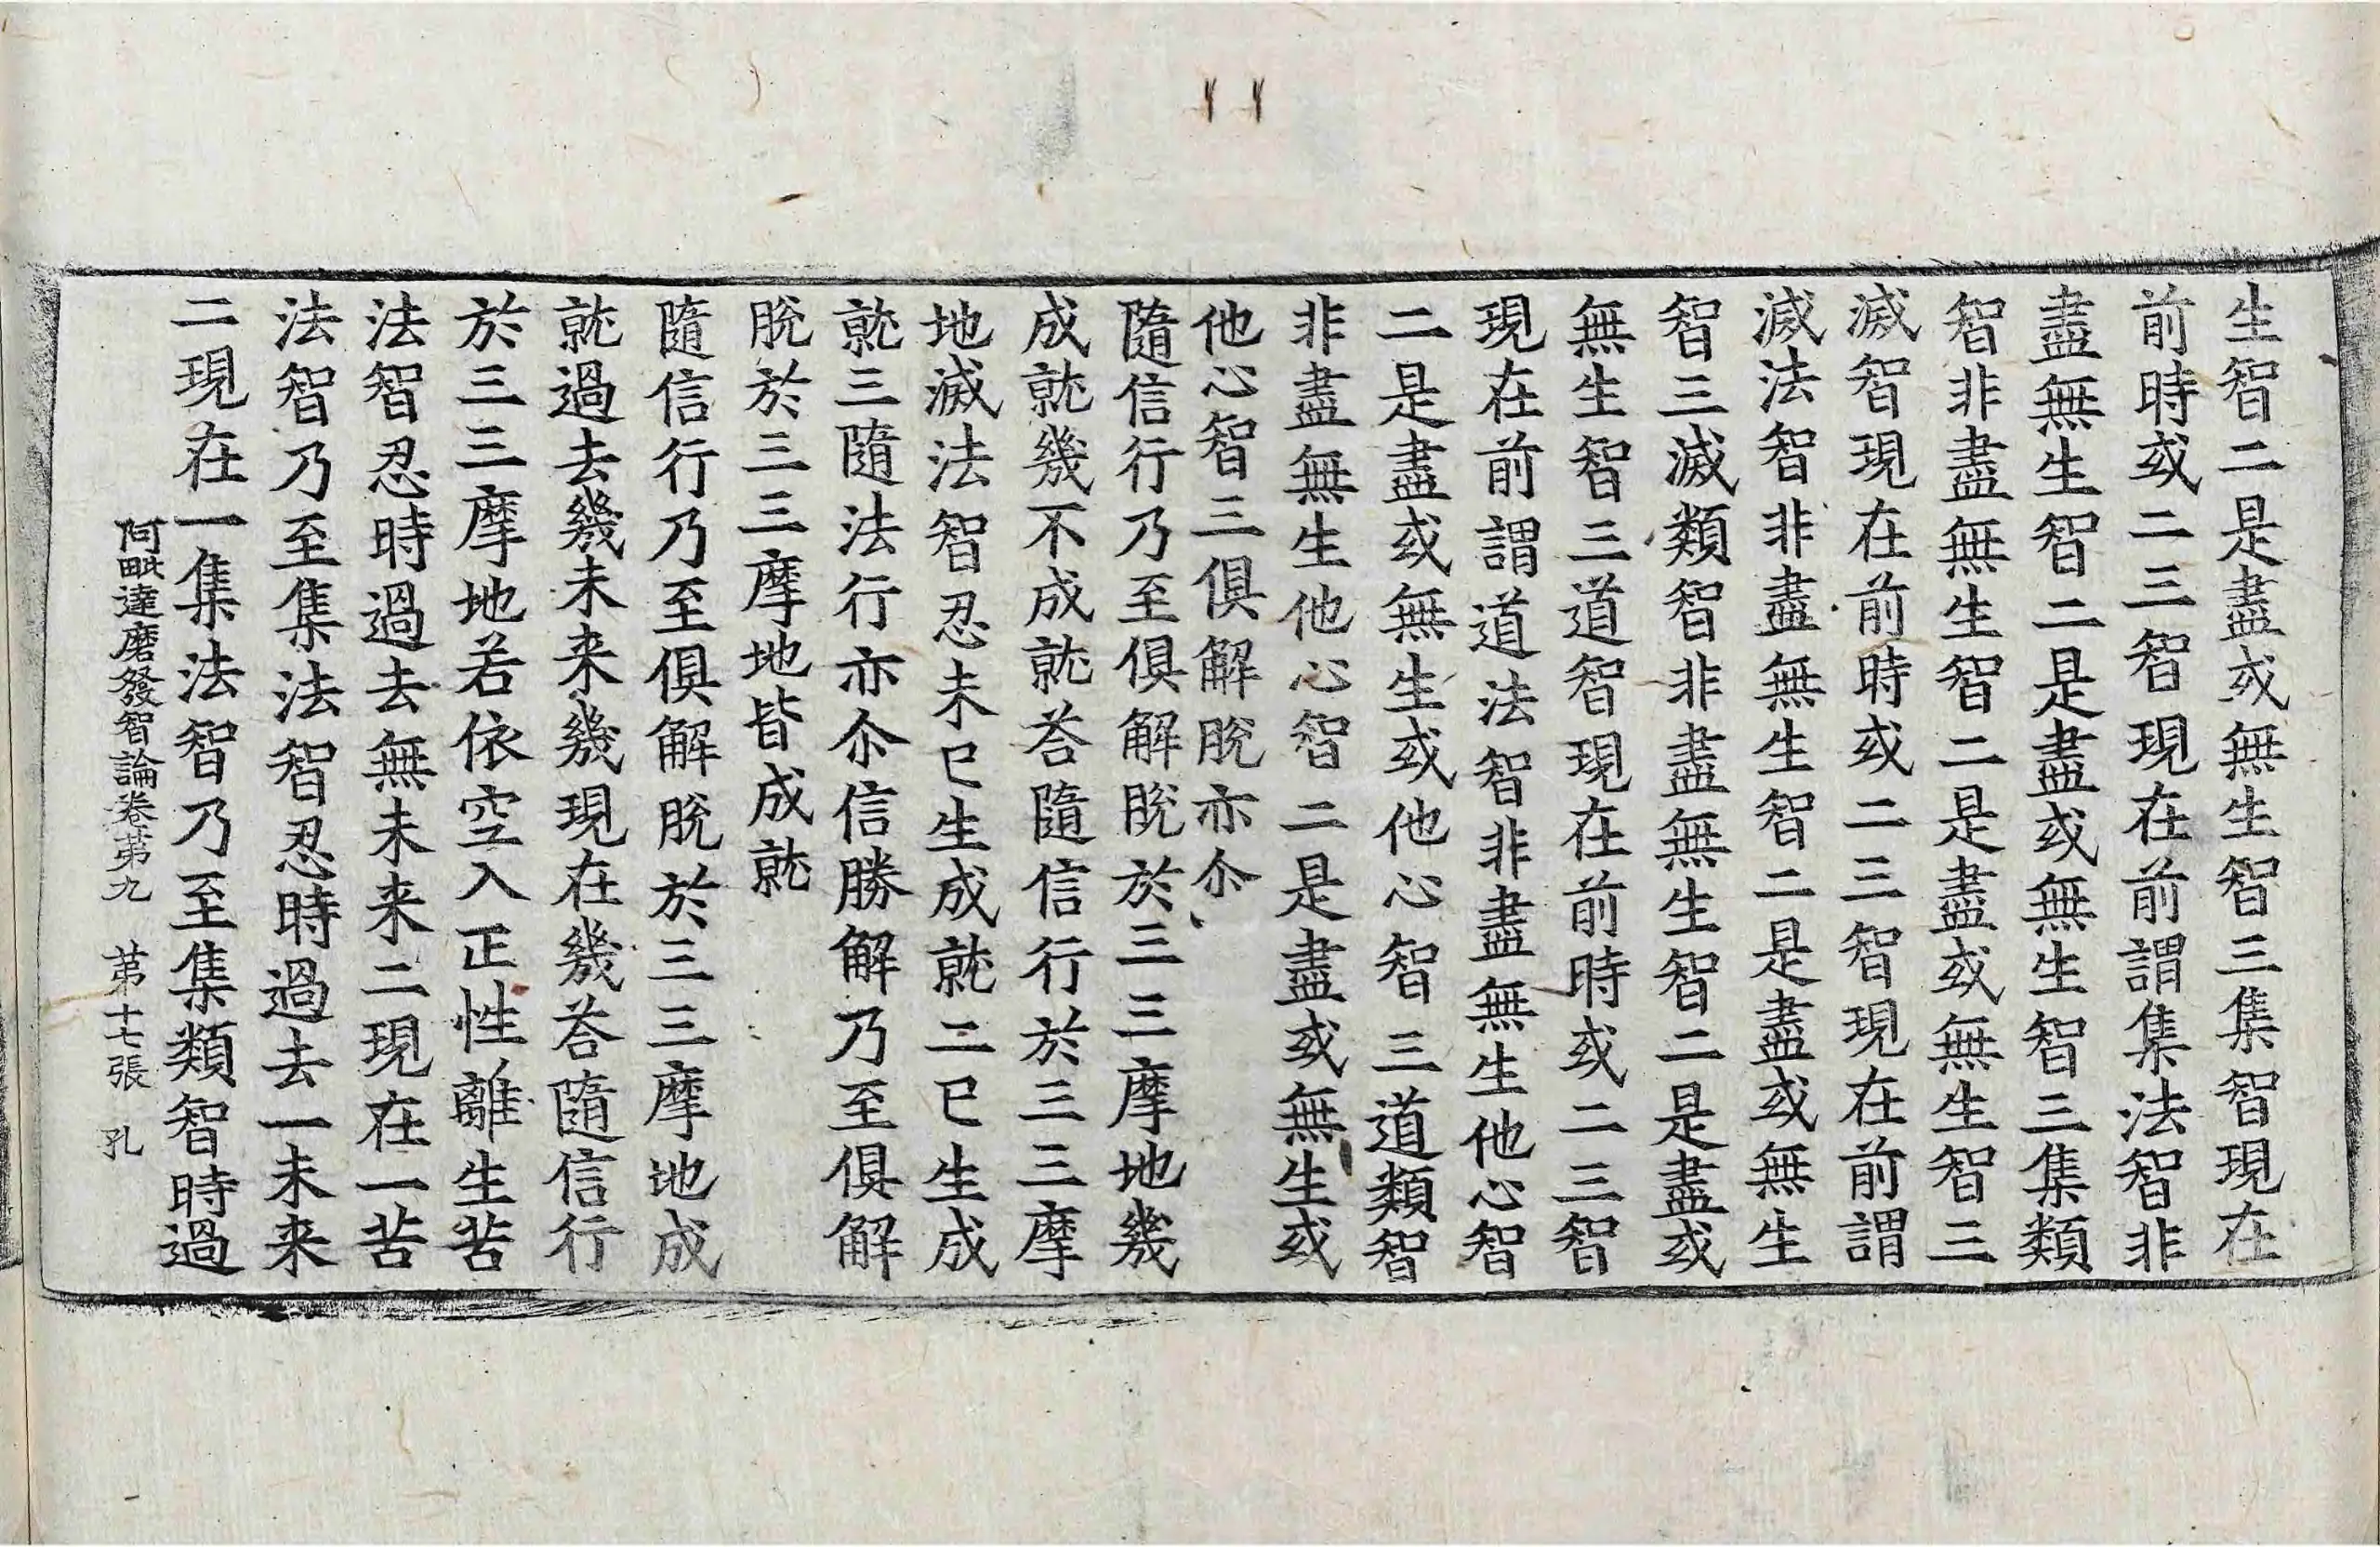 生智二是盡或無生智三集智現在
前時或二三智現在前謂集法智非
盡無生智二是盡或無生智三集類
智非盡無生智二是盡或無生智三
滅智現在前時或二三智現在前謂
滅法智非盡無生智二是盡或無生
智三滅類智非盡無生智二是盡或
無生智三道智現在前時或二三智
現在前謂道法智非盡無生他心智
二是盡或無生或他心智三道類智
非盡無生他心智二是盡或無生或
他心智三俱解脫亦尒
隨信行乃至俱解脫於三三摩地幾
成就幾不成就荅隨信行於三三摩
地滅法智忍未已生成就二已生成
就三隨法行亦尒信勝解乃至俱解
脫於三三摩地皆成就
隨信行乃至俱解脫於三三摩地成
就過去幾未来幾現在幾荅隨信行
於三三摩地若依空入正性離生苦
法智忍時過去無未来二現在一苦
法智乃至集法智忍時過去一未来
二現在一集法智乃至集類智時過
阿毗達磨發智論卷苐九　苐十七張　孔